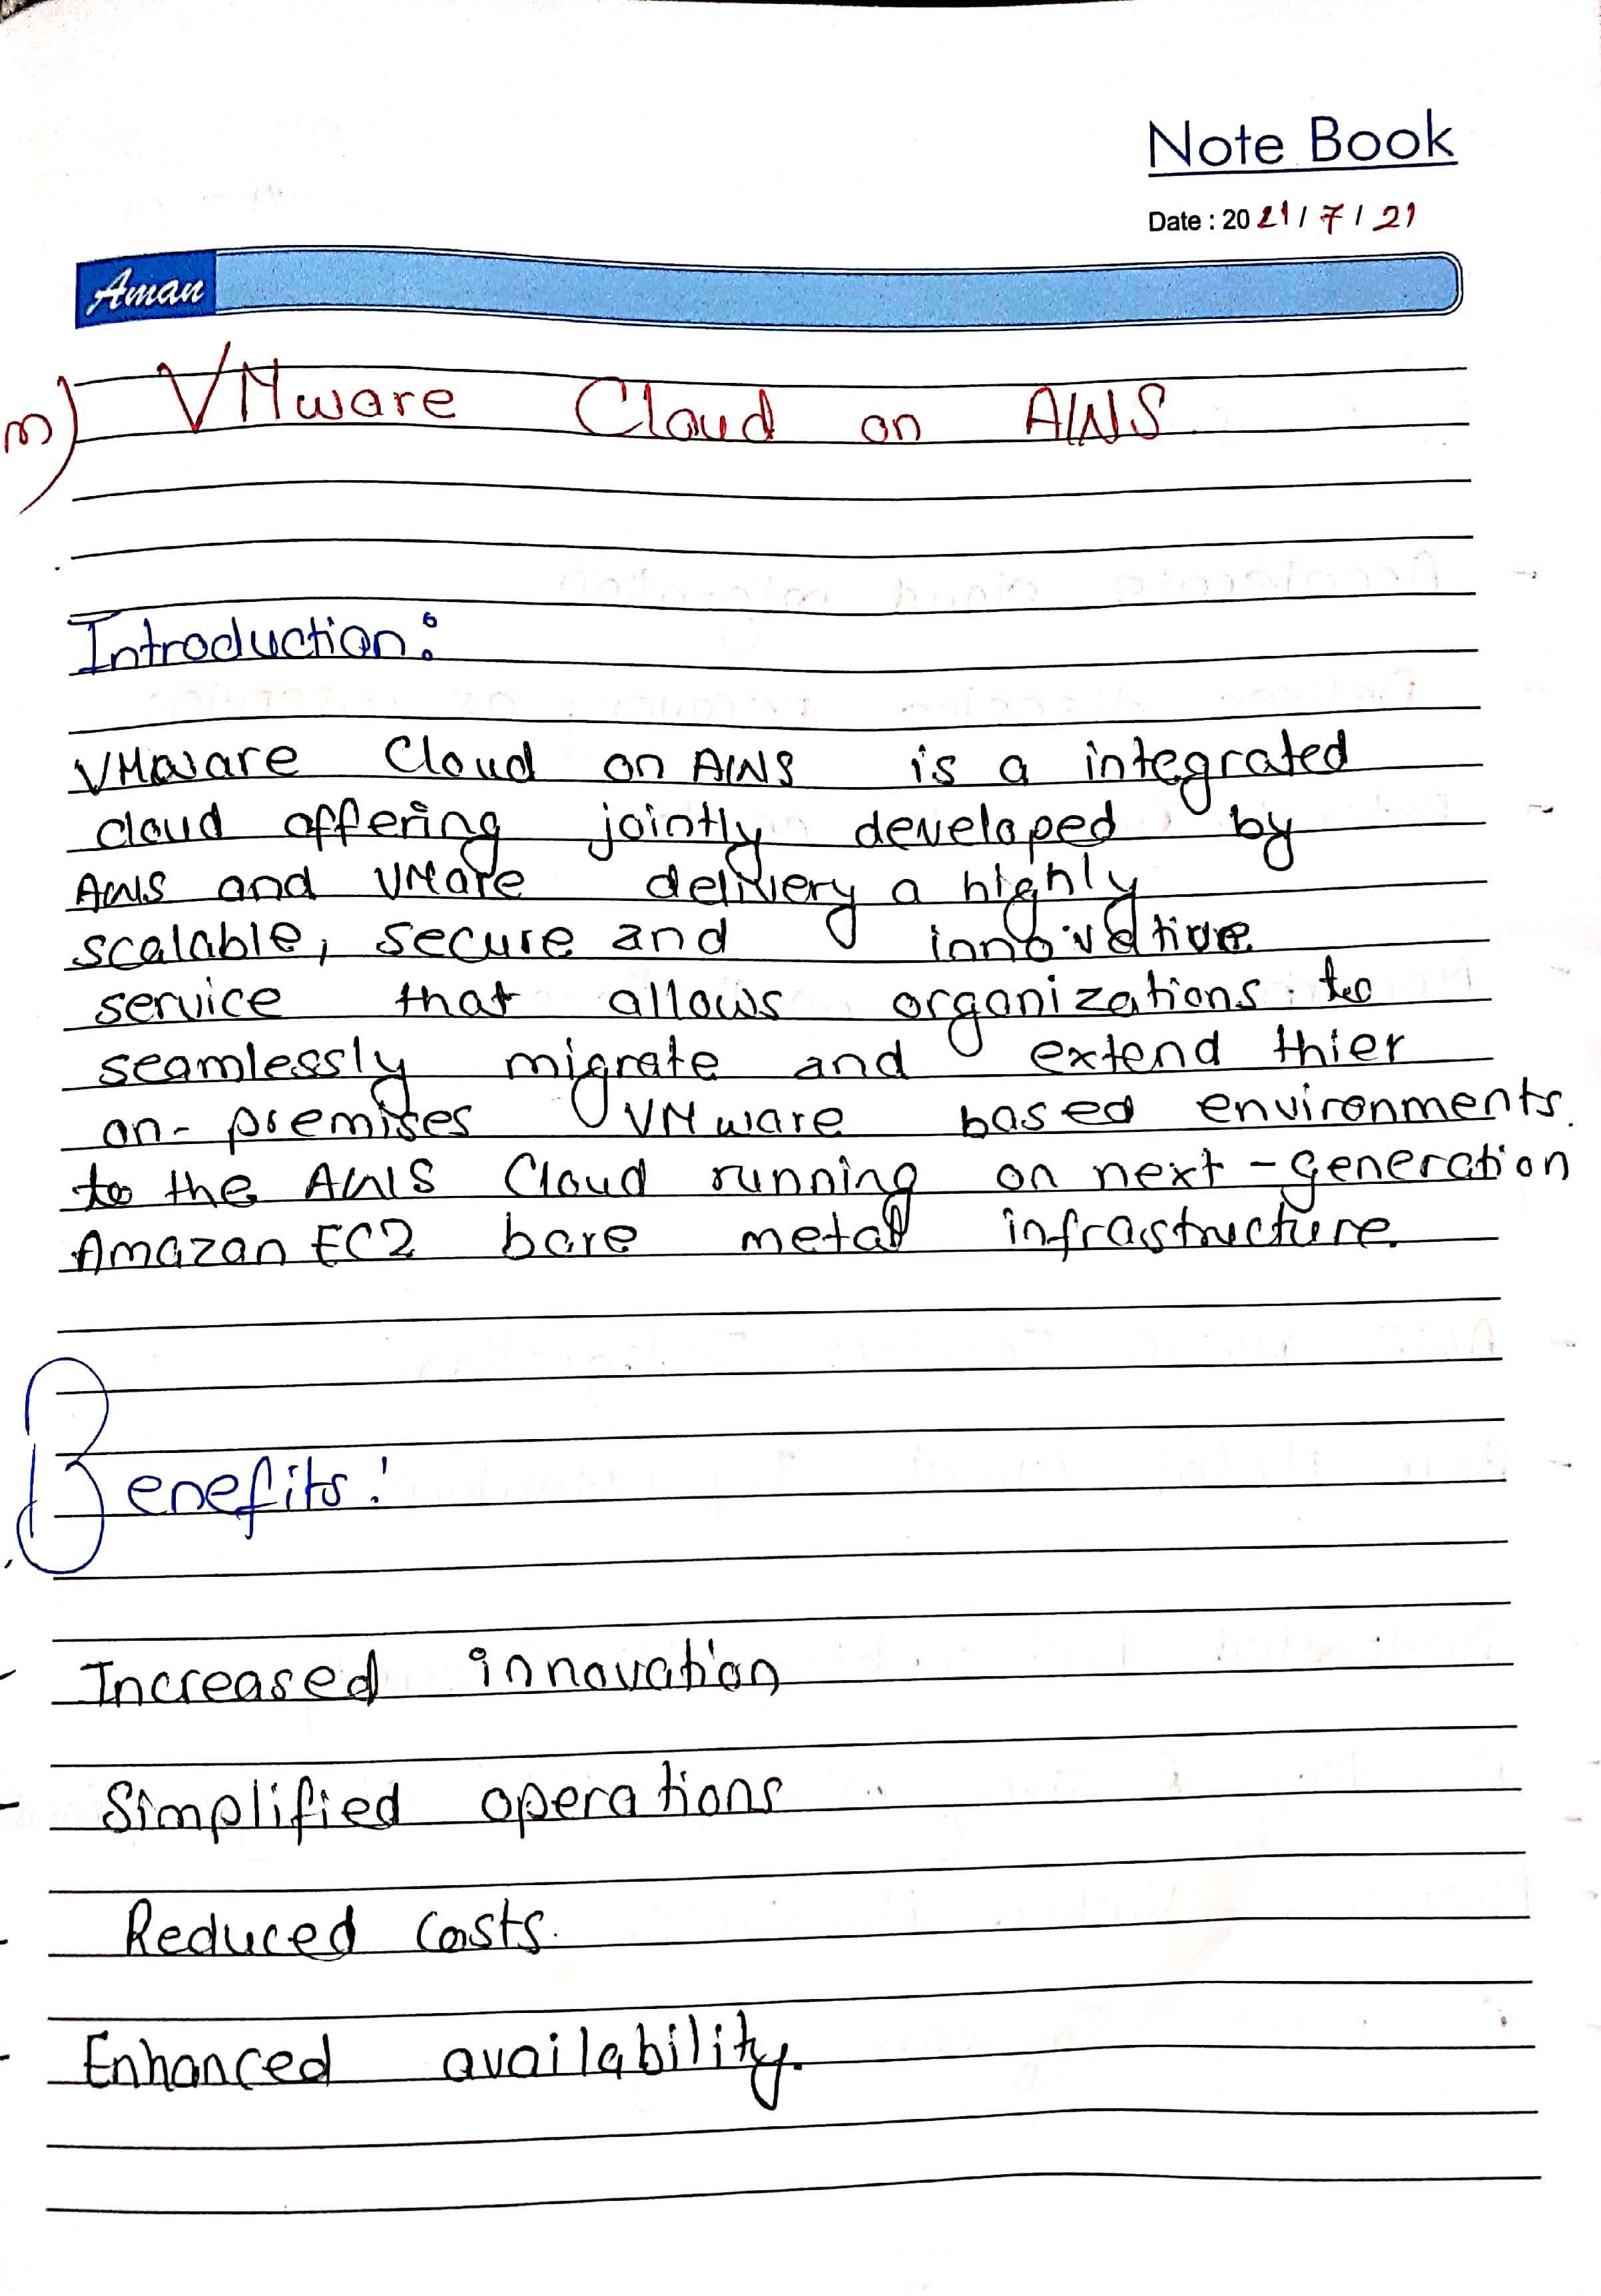 Note Book
Date : 2021 / 7 / 21
Aman
m) VMware Cloud on AWS
Introduction:
VMware Cloud on AWS is a integrated
cloud offering jointly developed by
AWS and VMare delivery a highly
scalable, secure and innovative
service that allows organizations to
seamlessly migrate and extend thier
on-premises VMware based environments.
to the AWS Cloud running on next-generation
Amazan EC2 bare metal infrastructure.
Benefits:
- Increased innovation
- Simplified operations
- Reduced costs.
- Enhanced availability.